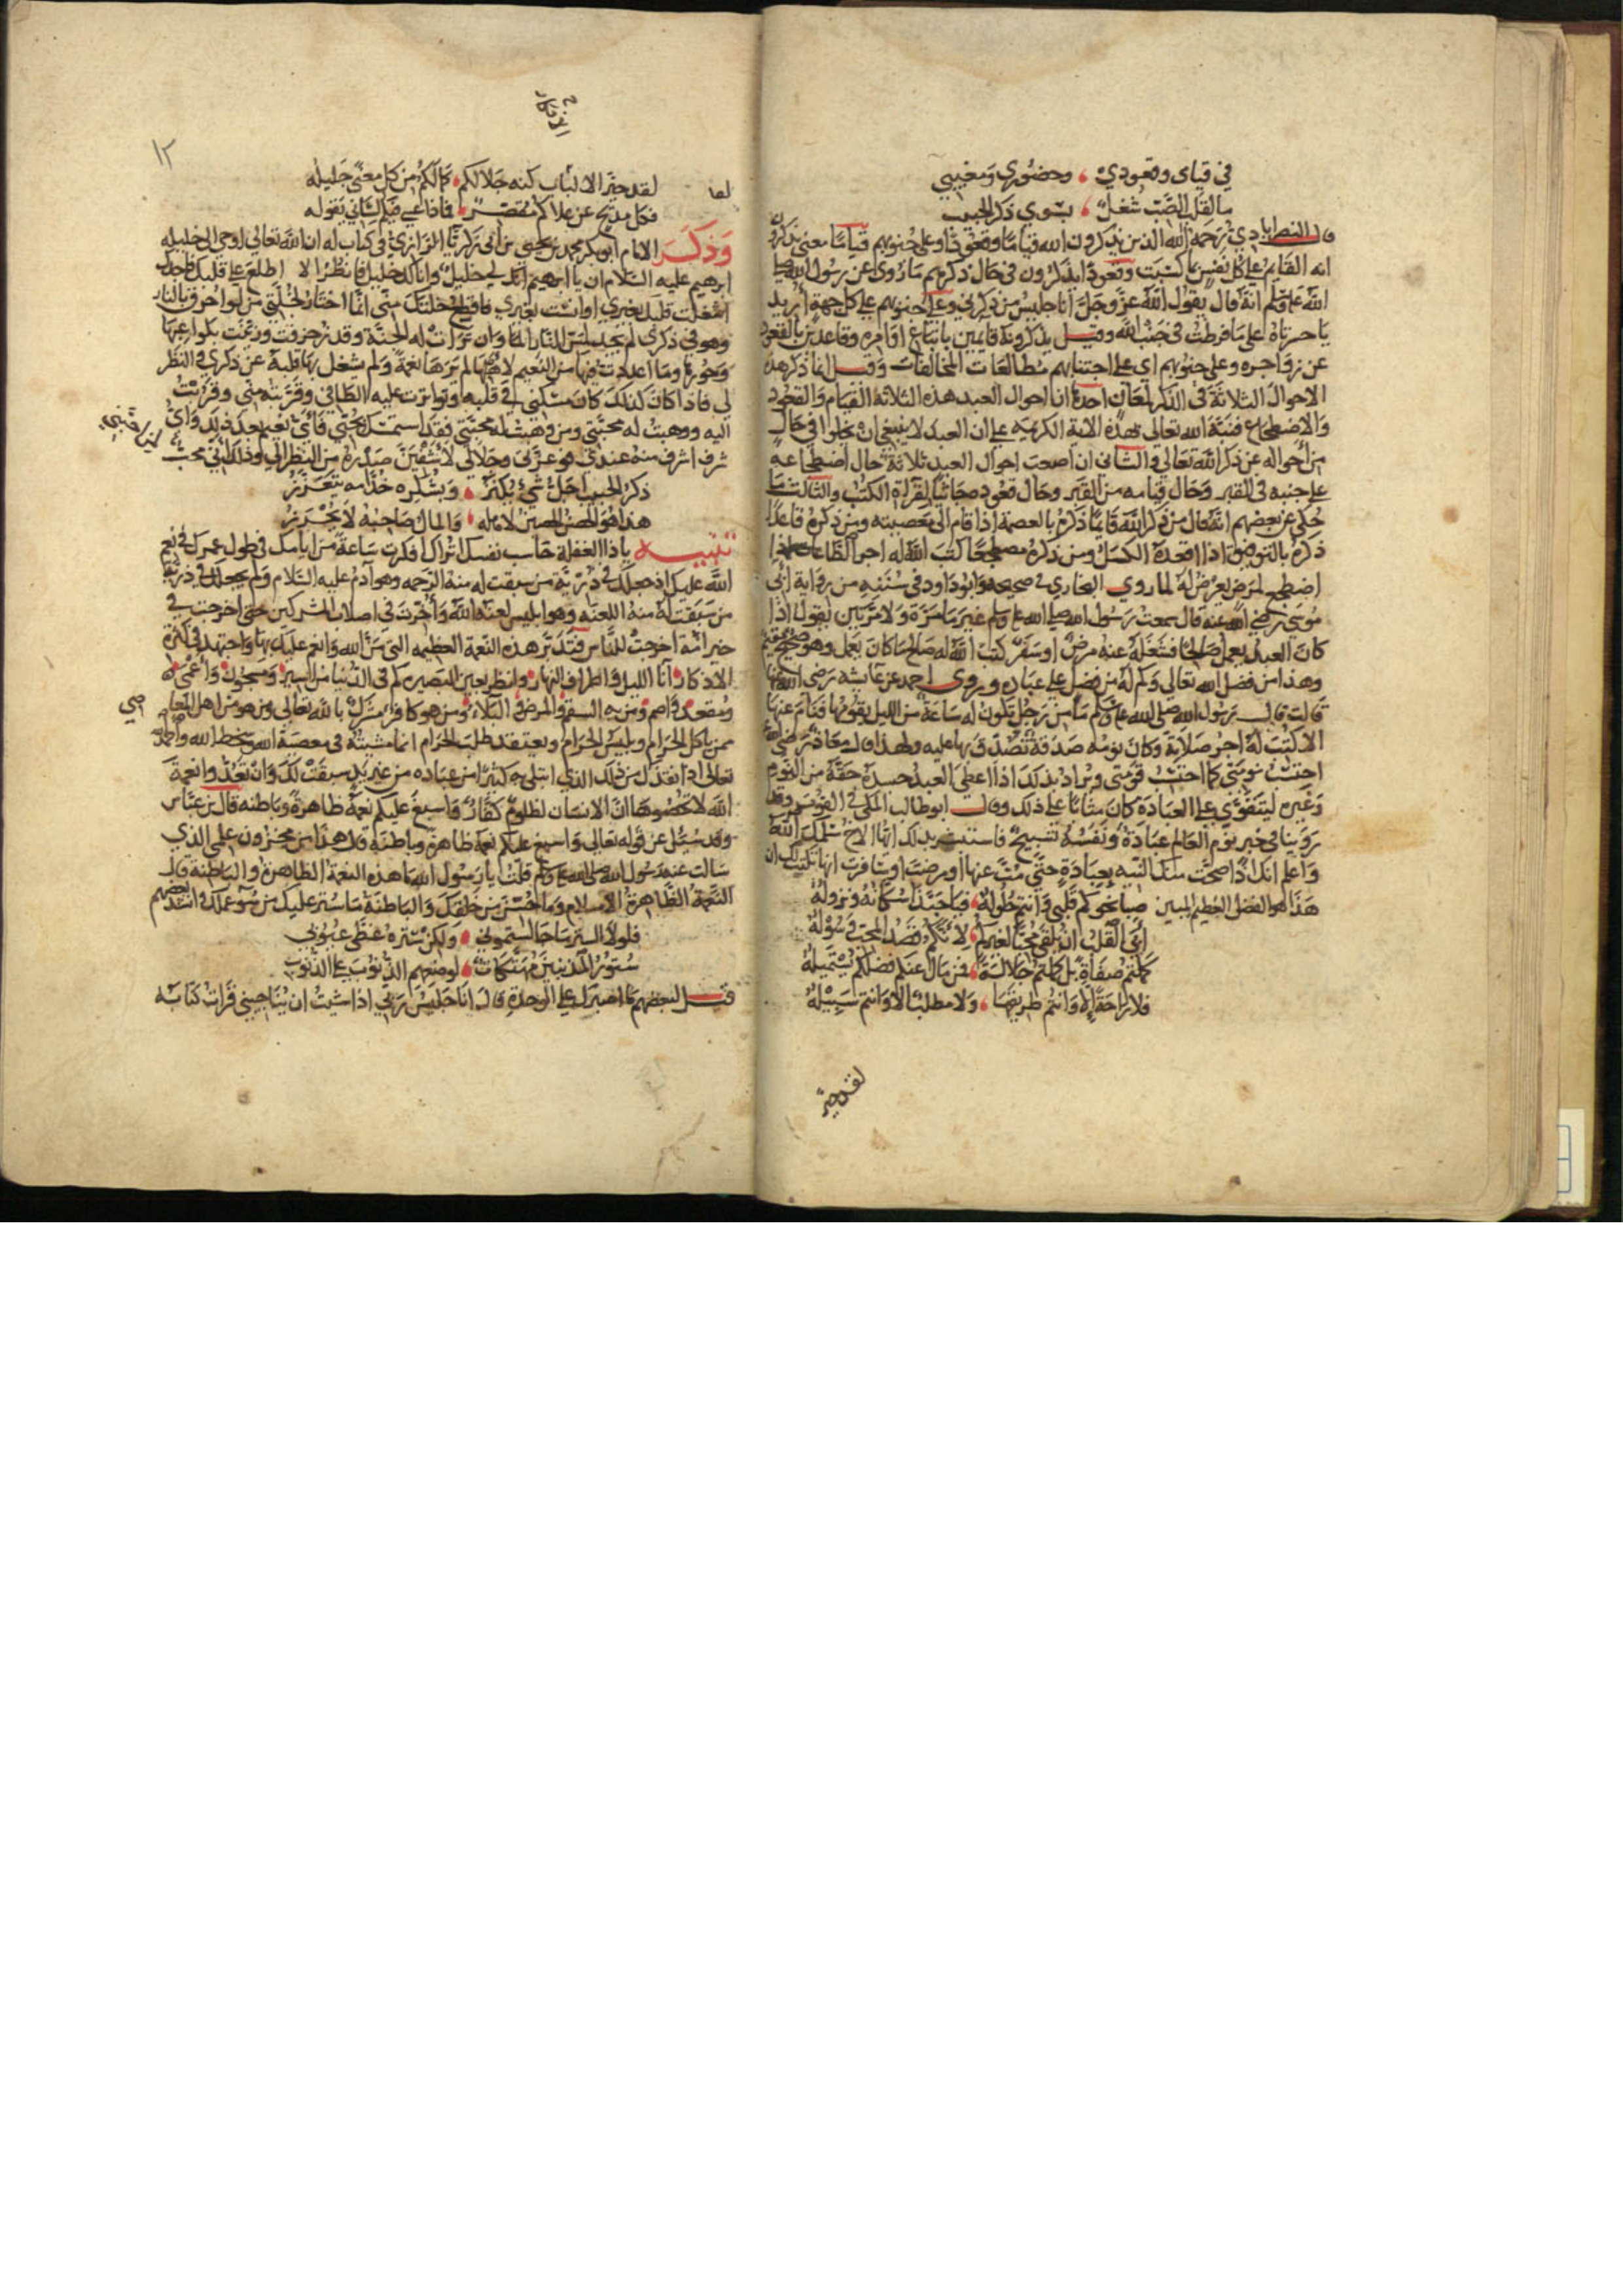 في قيامي وقعودي ، وحضوري ومغيبي
ما لقلب الصب شغل ، سوى ذكر الحبيب
قال النصراباذي رحمه الله الذين يذكرون الله قياما وقعودا وعلى جنوبهم قياما معنى يذكرون
انه القايم على كل نفس بما كسبت وقعودا يذكرون في حال ذكرهم ما روي عن رسول الله صلى
الله عليه وسلم انه قال يقول الله عز وجل انا جليس من ذكرني وعلى جنوبهم على كل جهة اريد
يا حسرتاه على ما فرطت في جنب الله وقيل يذكرونه قايمين باتباع اوامره وقاعدين بالقعود
عن زواجره وعلى جنوبهم اي على اجتنابهم مطالعات المخالفات وقيل انما ذكر هذه
الاحوال الثلاثة في الذكر لمعان احدها ان احوال العبد هذه الثلاثة القيام والقعود
والاضطجاع فنبه الله تعالى بهذه الاية الكريمه على ان العبد لا ينبغي ان يخلوا في حال
من احواله عن ذكر الله تعالى والثاني ان اصعب احوال العبد ثلاثة حال اضطجاعه
على جنبه في القبر وحال قيامه من القبر وحال قعوده جاثيا لقراة الكتب والثالث ما
حكي عن بعضهم انه قال من ذكر الله قايما ذكره بالعصمة اذا قام الى معصيته ومن ذكره قاعدا
ذكره بالتوفيق اذا اقعده الكسل ومن ذكره مضطجعا كتب الله له اجر الطاعات اذا
اضطجع لمرض يعرض له لما روي البخاري في صحيحه وابو داود في سننه من رواية ابي
موسى رضي الله عنه قال سمعت رسول الله صلى الله عليه وسلم غير ما مرة ولا مرتين يقول اذا
كان العبد يعمل صالحا فشغله عنه مرض او سفر كتب الله له صالح ما كان يعمل وهو صحيح مقيم
وهذا من فضل الله تعالى وكم له من فضل على عباده وروى احمد عن عايشه رضي الله عنها
قالت قال رسول الله صلى الله عليه وسلم ما من رجل تكون له ساعة من الليل يقومها فنام عنها
الا كتب له اجر صلاته وكان نومه صدقة تصدق بها عليه ولهذا قال معاذ رضي الله عنه
احتسب نومتي كما احتسب قومتي ويراد بذلك اذا اعطى العبد جسده حقه من النوم
وغيره ليتقوى على العبادة كان مثابا على ذلك وقال ابو طالب المكي في القوت وقد
روينا في خبر نوم العالم عبادة ونفسه تسبيح فاستبشر بذلك ايها الاخ
واعلم انك اذا اصحت منك النيه بعبادة حتى مت عنها او مرضت او سافرت انها تكتب لك ان
هذا لهو الفضل العظيم المبين صبا نحوكم قلبي وانتم حلوله ، فيا حبذا سكانه ونزوله
ابى القلب ان يلقى محبا لغيركم ، لانكم قصد المحب وسوله
كملتم صفاة بل كملتم جلالة ، فمن مال عنكم فضلكم يستميله
فلا راحة الا وانتم طريقها ، ولا مطلب الا وانتم سبيله
لقد حير
١٢
لقد حير الالباب كنه جلالكم ، فما لكم من كل معنى جليله
فكل مديح عن علاكم مقصر ، فماذا عسى فيكم لساني يقوله
وذكر الامام ابو بكر محمد بن يحيى بن ابي زكريا الرازي في كتاب له ان الله تعالى اوحى الى خليله
ابرهيم عليه السلام ان يا ابرهيم انك لي خليل وانا لك خليل فانظر الا اطلع على قلبك فاجدك
اشغلت قلبك بغيري او انست بغيري فاقطع خلتك مني انما اختار لخلتي من لو احرق بالنار
وهو في ذكري لم يجد لمس النار الما وان تراءت له الجنة وقد زخرفت وزينت بكواعبها
وحورها وما اعددت فيها من النعيم لاهلها لم يرها نعمة ولم يشغل بها قلبه عن ذكري والنظر
لي فاذا كان كذلك كان مسكني في قلبه وتواترت عليه الطافي وقربته مني وقربت
اليه ووهبت له محبتي ومن وهبت له محبتي فقد استمسك بحبتي فاي نعيم يعدل ذلك واي
شرف اشرف منه عندي فوعزتي وجلالي لاشفين صدره من النظر الي وذلك اني محب
ذكر الحبيب اجل شي يكنز ، وبشكره خدامه تتعزز
هذا هو الحصن الحصين لامله ، والمال صاحبه لا يحرز
تنبيه يا ذا الغفلة حاسب نفسك اتراك افكرت ساعة من ايامك في طول عمرك في نعم
الله عليك اذ جعلك في ذرية من سبقت له منه الرحمه وهو ادم عليه السلام ولم يجعلك في ذرية
من سبقت له منه اللعنه وهو ابليس لعنه الله واخرت في اصلاب المشركين حتى اخرجت في
خير امة اخرجت للناس فتدبر هذه النعمة العظيمه التي من الله وانعم عليك بها واجتهد في كثرة
الاذكار انا الليل واطراف النهار وانظر بعين البصيره كم في الدنيا من اسير ومسجون واعمى
ومقعد واصم ومن به السقم والمرض والبلاء ومن هو كافر مشرك بالله تعالى ومن هو من اهل المعاصي
ممن ياكل الحرام ويلبس الحرام ويعتقد طلب الحرام انما مشيته في معصية الله وسخط الله واحمد
تعالى اذ انقذك من ذلك الذي ابتلي به كثيرا من عباده من غير يد سبقت لك وان تعدوا نعمة
الله لا تحصوها ان الانسان لظلوم كفار واسبغ عليكم نعمه ظاهرة وباطنه قال بن عباس
وقد سيل عن قوله تعالى واسبغ عليكم نعمه ظاهرة وباطنة قال هذا من مخزون علمي الذي
سالت عنه رسول الله صلى الله عليه وسلم قلت يا رسول الله ما هذه النعمة الظاهرة والباطنة قال
النعمة الظاهرة الاسلام وما حسن من خلقك والباطنة ما ستر عليك من سوء عملك انشد بعضهم
فلولا الستر ما جالستموني ، ولكن ستره غطى عيوبي
ستور المذنبين مهتكات ، لوصفهم الذنوب على الذنوب
قيل لبعضهم ما اصبرك على الوحدة قال انا جليس ربي اذا شيت ان يناجيني قرات كتابه